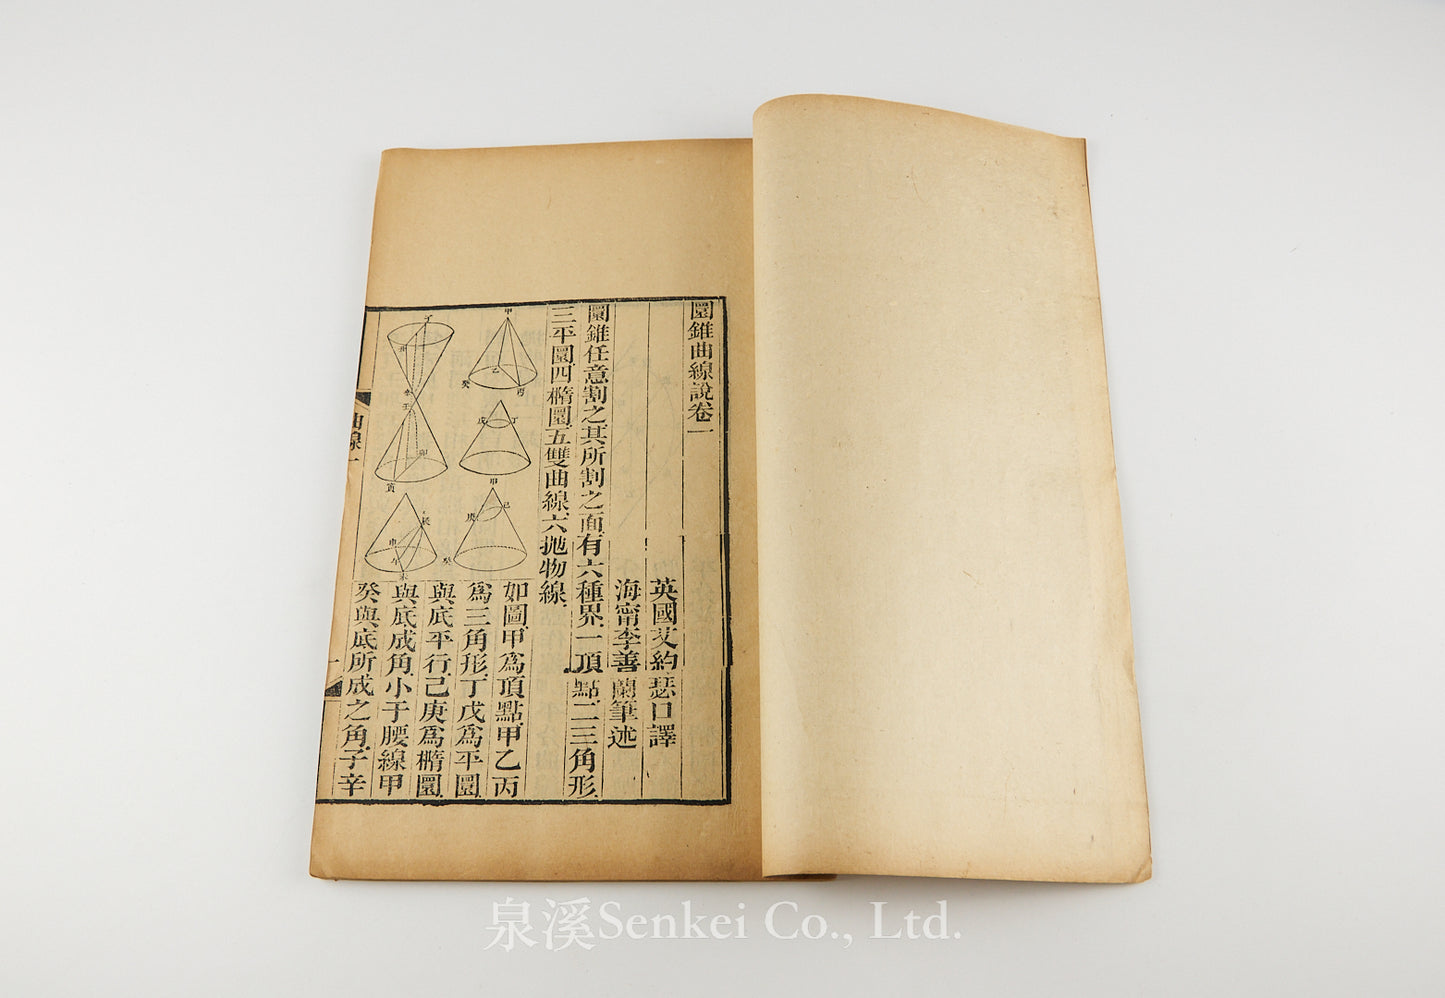 圜錐曲線說卷一
英國艾約瑟口譯
海甯李善蘭筆述
圜錐任意割之其所割之面有六種界一頂點二三角形
三平圜四橢圜五雙曲線六拋物線
如圖甲為頂點甲乙丙
為三角形丁戊為平圜
與底平行己庚為橢圜
與底成角小于腰線甲
癸與底所成之角子辛
甲
乙
癸
丙
戊
丁
甲
己
庚
癸
丁
辛
壬
卯
寅
辰
申
午
未
曲線一
一
泉溪Senkei Co., Ltd.